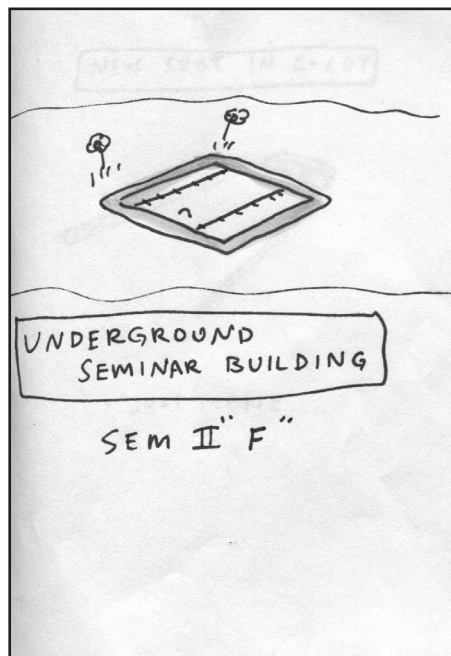 UNDERGROUND
SEMINAR BUILDING
SEM II "F"